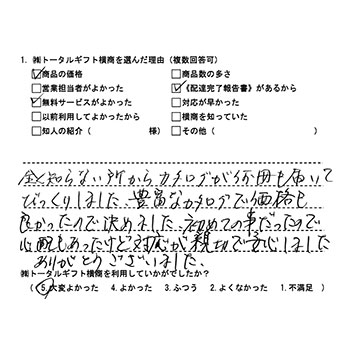 1. ㈱トータルギフト横商を選んだ理由（複数回答可）
☑商品の価格 □商品数の多さ
□営業担当者がよかった ☑《配達完了報告書》があるから
☑無料サービスがよかった □対応が早かった
□以前利用してよかったから □横商を知っていた
□知人の紹介（ 様） □その他（ ）
全く知らない所からカタログが何冊も届いて
びっくりしました、豊富なカタログで価格も
良かったので決めました、初めての事だったので
心配もあったけど対応が親切で安心しました
ありがとうございました、
㈱トータルギフト横商を利用していかがでしたか？
（5.大変よかった 4.よかった 3.ふつう 2.よくなかった 1.不満足 ）